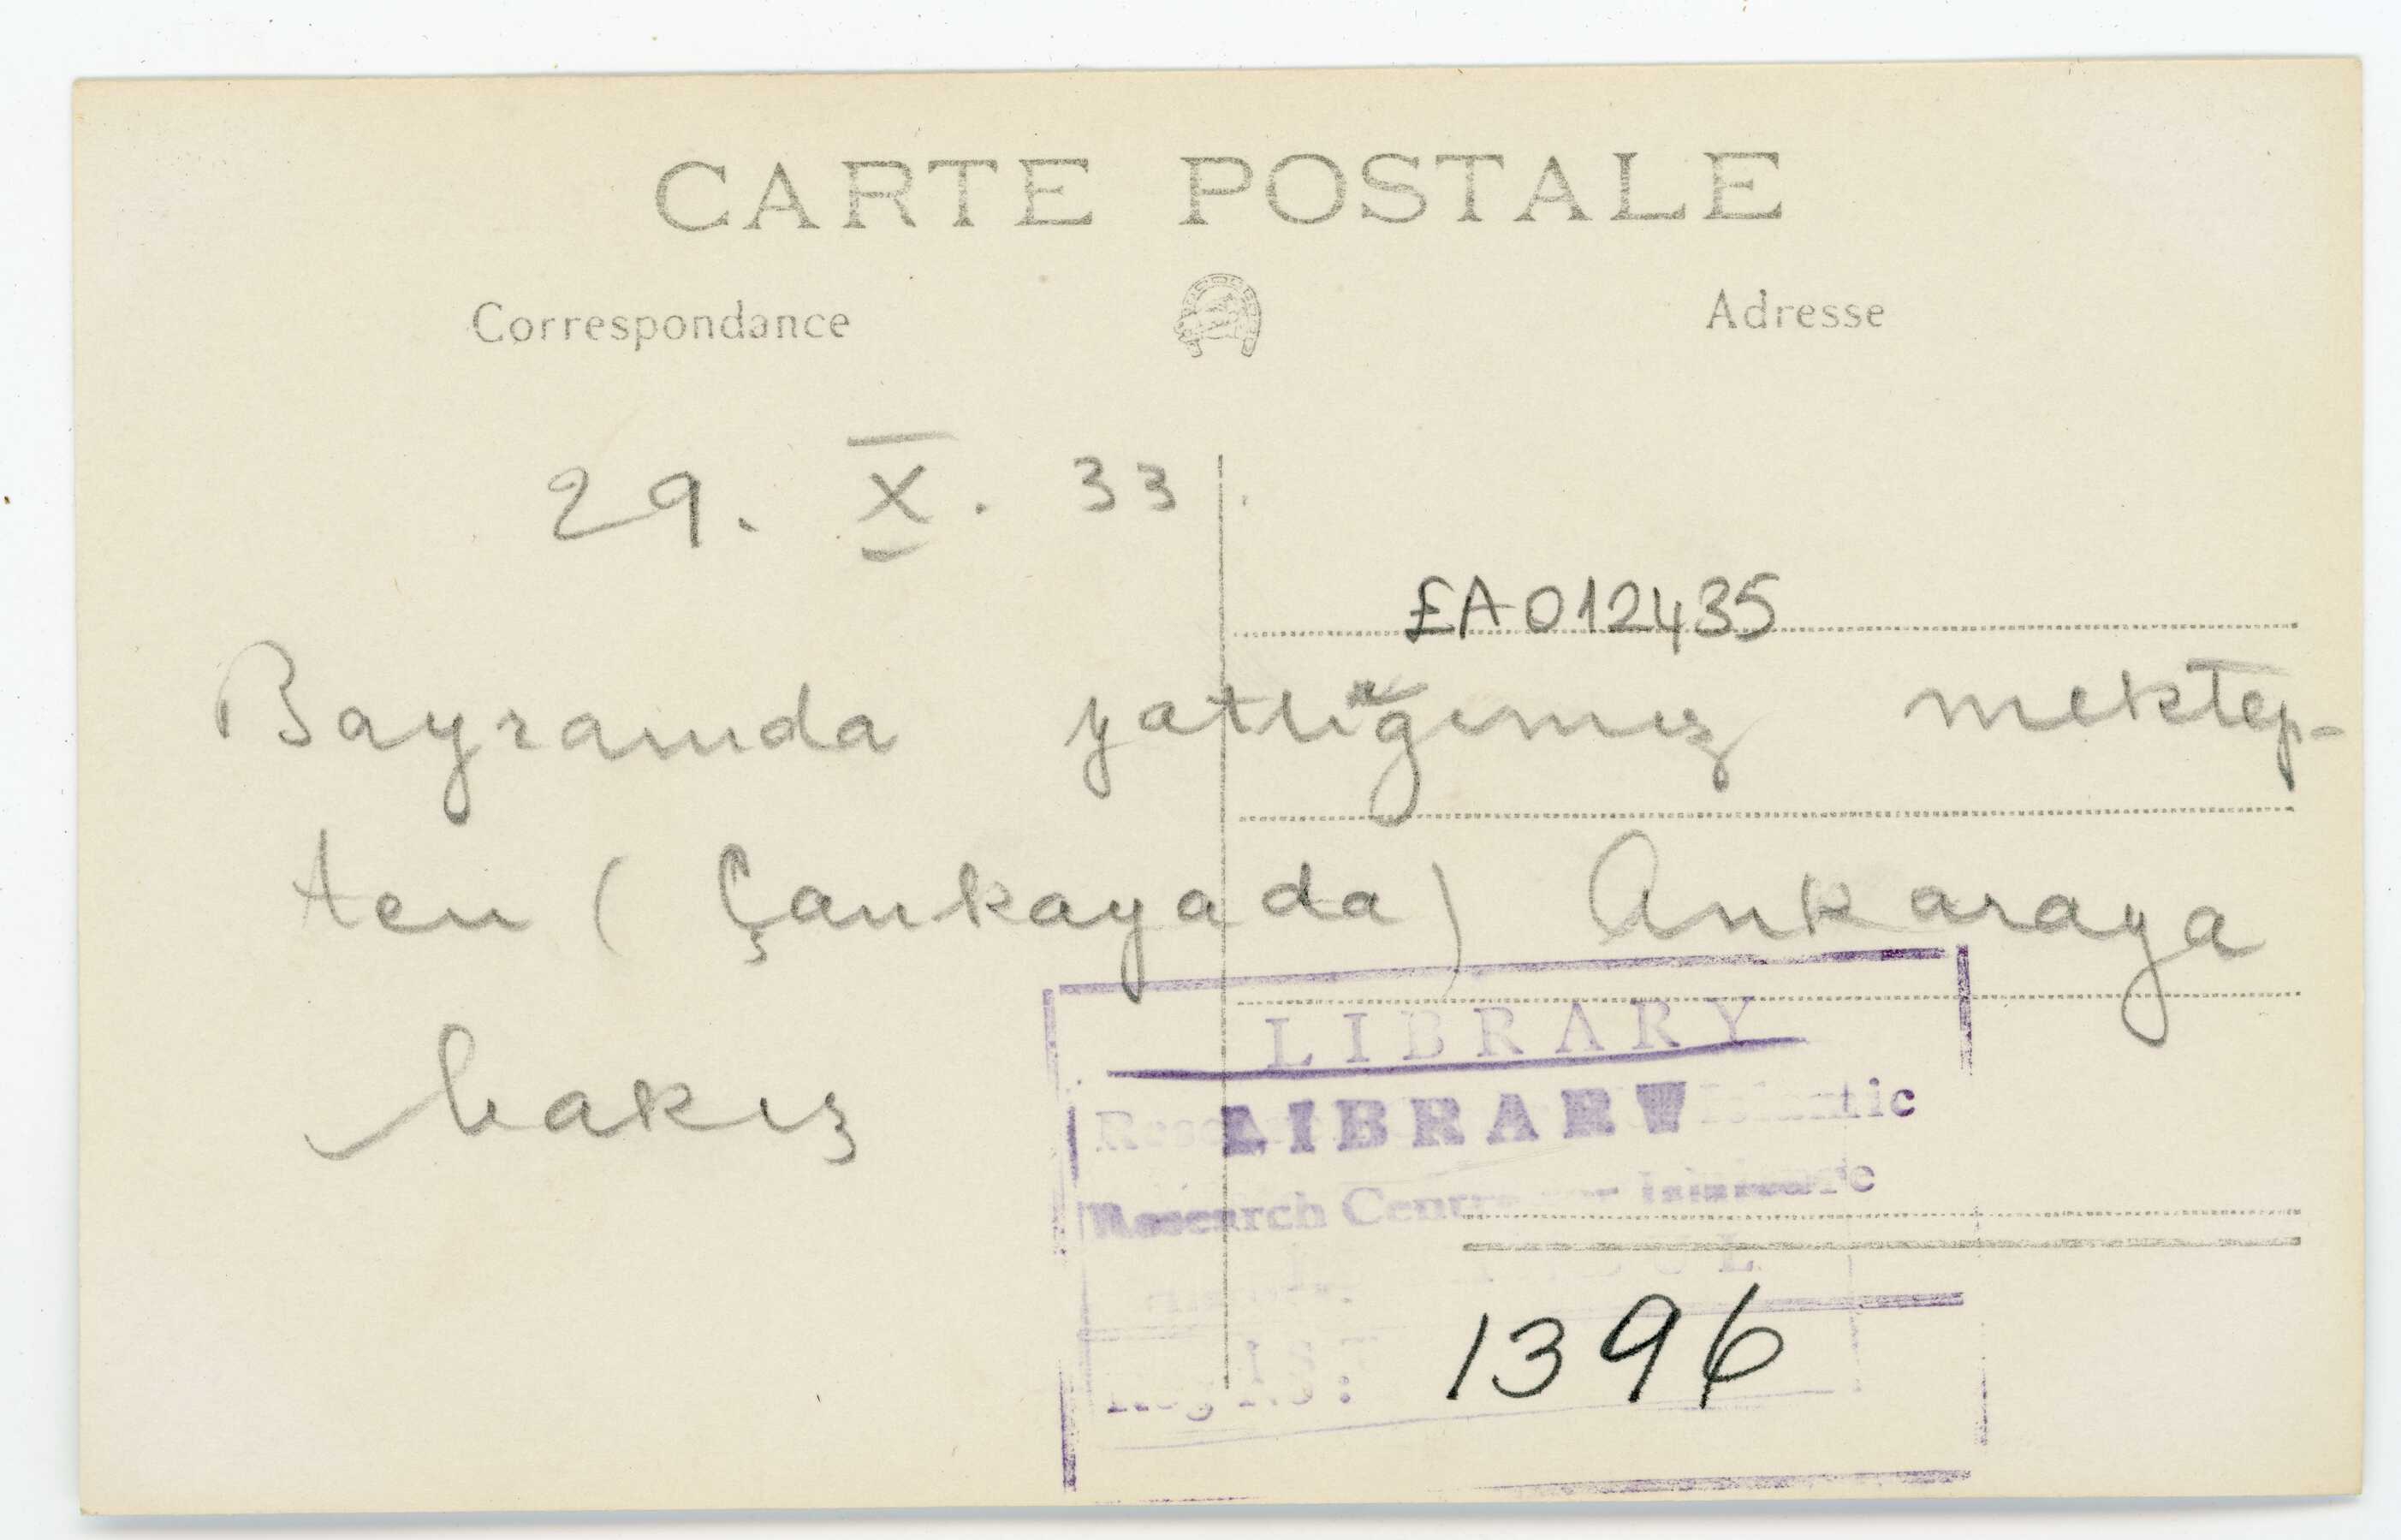 CARTE POSTALE
Correspondance
Adresse
29. X. 33
EA012435
Bayramda yattığımız mektep-
ten (Çankayada) Ankaraya
bakış
LIBRARY
LIBRARY
Research Centre
1396